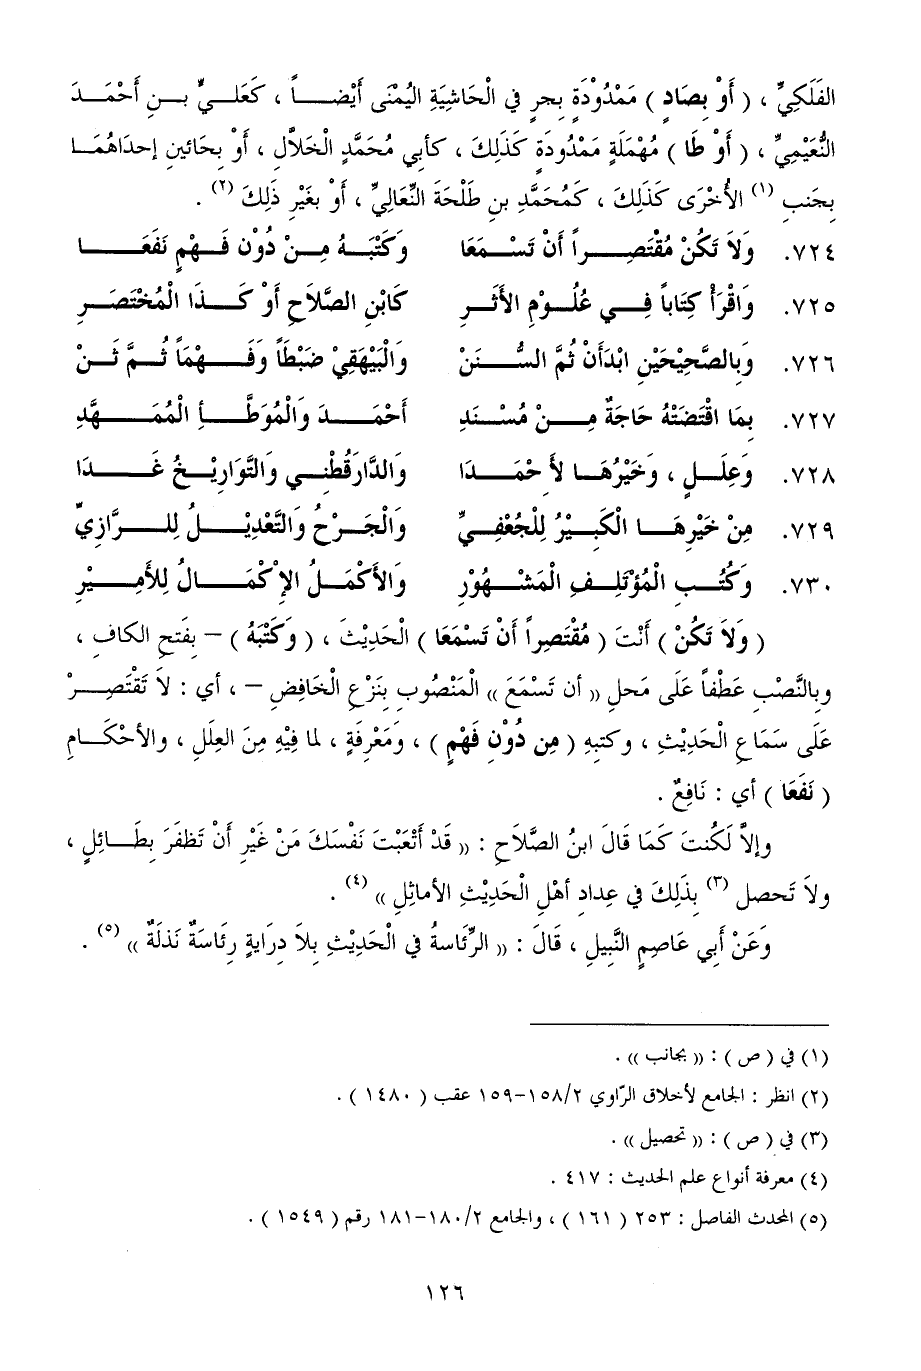 الفَلَكِيِّ ، ( أَوْ بِصَادٍ ) مَمْدُودَةٍ بِحِبرٍ في الْحَاشِيَةِ اليُمْنَى أَيْضاً ، كَعَلِيِّ بنِ أَحْمَدَ
النُّعَيْمِيِّ ، ( أَوْ طَا ) مُهْمَلَةٍ مَمْدُودَةٍ كَذَلِكَ ، كأبي مُحَمَّدٍ الْخَلاَّلِ ، أَوْ بِحَائينِ إحدَاهُمَا
بِجَنبِ (١) الأُخْرَى كَذَلِكَ ، كَمُحَمَّدِ بنِ طَلْحَةَ النِّعَالِيِّ ، أَوْ بِغَيْرِ ذَلِكَ (٢) .
٧٢٤. وَلاَ تَكُنْ مُقْتَصِراً أَنْ تَسْمَعَا وَكَتْبَهُ مِنْ دُوْنِ فَهْمٍ نَفَعَا
٧٢٥. وَاقْرَأْ كِتَاباً فِي عُلُوْمِ الأَثَرِ كَابْنِ الصَّلاَحِ أوْ كَذَا الْمُخْتَصَرِ
٧٢٦. وَبِالصَّحِيْحَيْنِ ابْدَأَنْ ثُمَّ السُّنَنْ وَالْبَيْهَقِيْ ضَبْطَاً وَفَهْمَاً ثُمَّ ثَنْ
٧٢٧. بِمَا اقْتَضَتْهُ حَاجَةٌ مِنْ مُسْنَدِ أَحْمَدَ وَالْمُوَطَّأِ الْمُمَهَّدِ
٧٢٨. وَعِلَلٍ ، وَخَيْرُهَا لأَحْمَدَا وَالدَّارَقُطْنِي وَالتَّوَارِيْخُ غَدَا
٧٢٩. مِنْ خَيْرِهَا الْكَبِيْرُ لِلْجُعْفِيِّ وَالْجَرْحُ وَالتَّعْدِيْلُ لِلرَّازِيِّ
٧٣٠. وَكُتُبِ الْمُؤْتَلِفِ الْمَشْهُوْرِ وَالأَكْمَلُ الإِكْمَالُ لِلأَمِيْرِ
( وَلاَ تَكُنْ ) أَنْتَ ( مُقْتَصِراً أَنْ تَسْمَعَا ) الْحَدِيْثَ ، ( وَكَتْبَهُ ) – بِفَتحِ الكافِ ،
وبالنَّصْبِ عَطْفاً عَلَى مَحلِ (( أن تَسْمَعَ )) الْمَنْصُوبِ بِنَزْعِ الْخَافِضِ – ، أي : لاَ تَقْتَصِرْ
عَلَى سَمَاعِ الْحَدِيْثِ ، وكتبهِ ( مِن دُوْنِ فَهْمٍ ) ، ومَعْرِفَةٍ ، لما فِيْهِ مِنَ العِلَلِ ، والأحْكَامِ
( نَفَعَا ) أي : نَافِعٌ .
وإلاَّ لَكُنتَ كَمَا قَالَ ابنُ الصَّلاَحِ : (( قَدْ أَتْعَبْتَ نَفْسَكَ مَنْ غَيْرِ أَنْ تَظفَرَ بِطَائِلٍ ،
ولاَ تَحصل (٣) بِذَلِكَ في عِدادِ أهْلِ الْحَدِيْثِ الأماثِلِ )) (٤) .
وَعَنْ أَبي عَاصِمٍ النَّبِيلِ ، قَالَ : (( الرِّئَاسةُ في الْحَدِيْثِ بِلاَ دِرَايةٍ رِئَاسَةٌ نَذلَةٌ )) (٥) .
(١) في ( ص ) : (( بجانب )) .
(٢) انظر : الجامع لأخلاق الرّاوي ٢/١٥٨-١٥٩ عقب ( ١٤٨٠ ) .
(٣) في ( ص ) : (( تحصيل )) .
(٤) معرفة أنواع علم الحديث : ٤١٧ .
(٥) المحدث الفاصل : ٢٥٣ ( ١٦١ ) ، والجامع ٢/١٨٠-١٨١ رقم ( ١٥٤٩ ) .
١٢٦